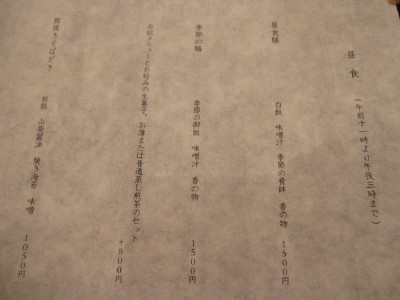 昼食 (午前十一時より午後三時まで)
昼食膳
白飯 味噌汁 季節の青鉢 香の物 1500円
季節の麺
季節の御飯 味噌汁 香の物 1500円
右記メニューとお好みの生菓子、お薄または普通蒸し煎茶のセット
+800円
粗挽きそばがき
粒餡 山葵醤油 焼き海苔 味噌 1050円